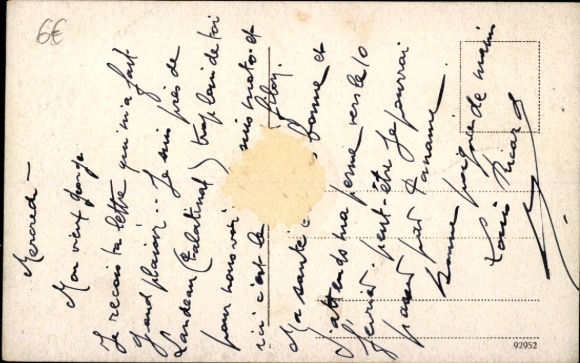 6€
Mercredi –
Mon vieux
Je reçois ta lettre qui m'a fait
grand plaisir.. Je suis près de
Landau (Palatinat) trop loin de toi
pour nous voir
ici c'est le filon.
Ma santé bonne et
j'attends ma perme vers le 10
février peut-être je pourrai
passer par Paname.
Bonne poignée de main
Louis Ricard
92952